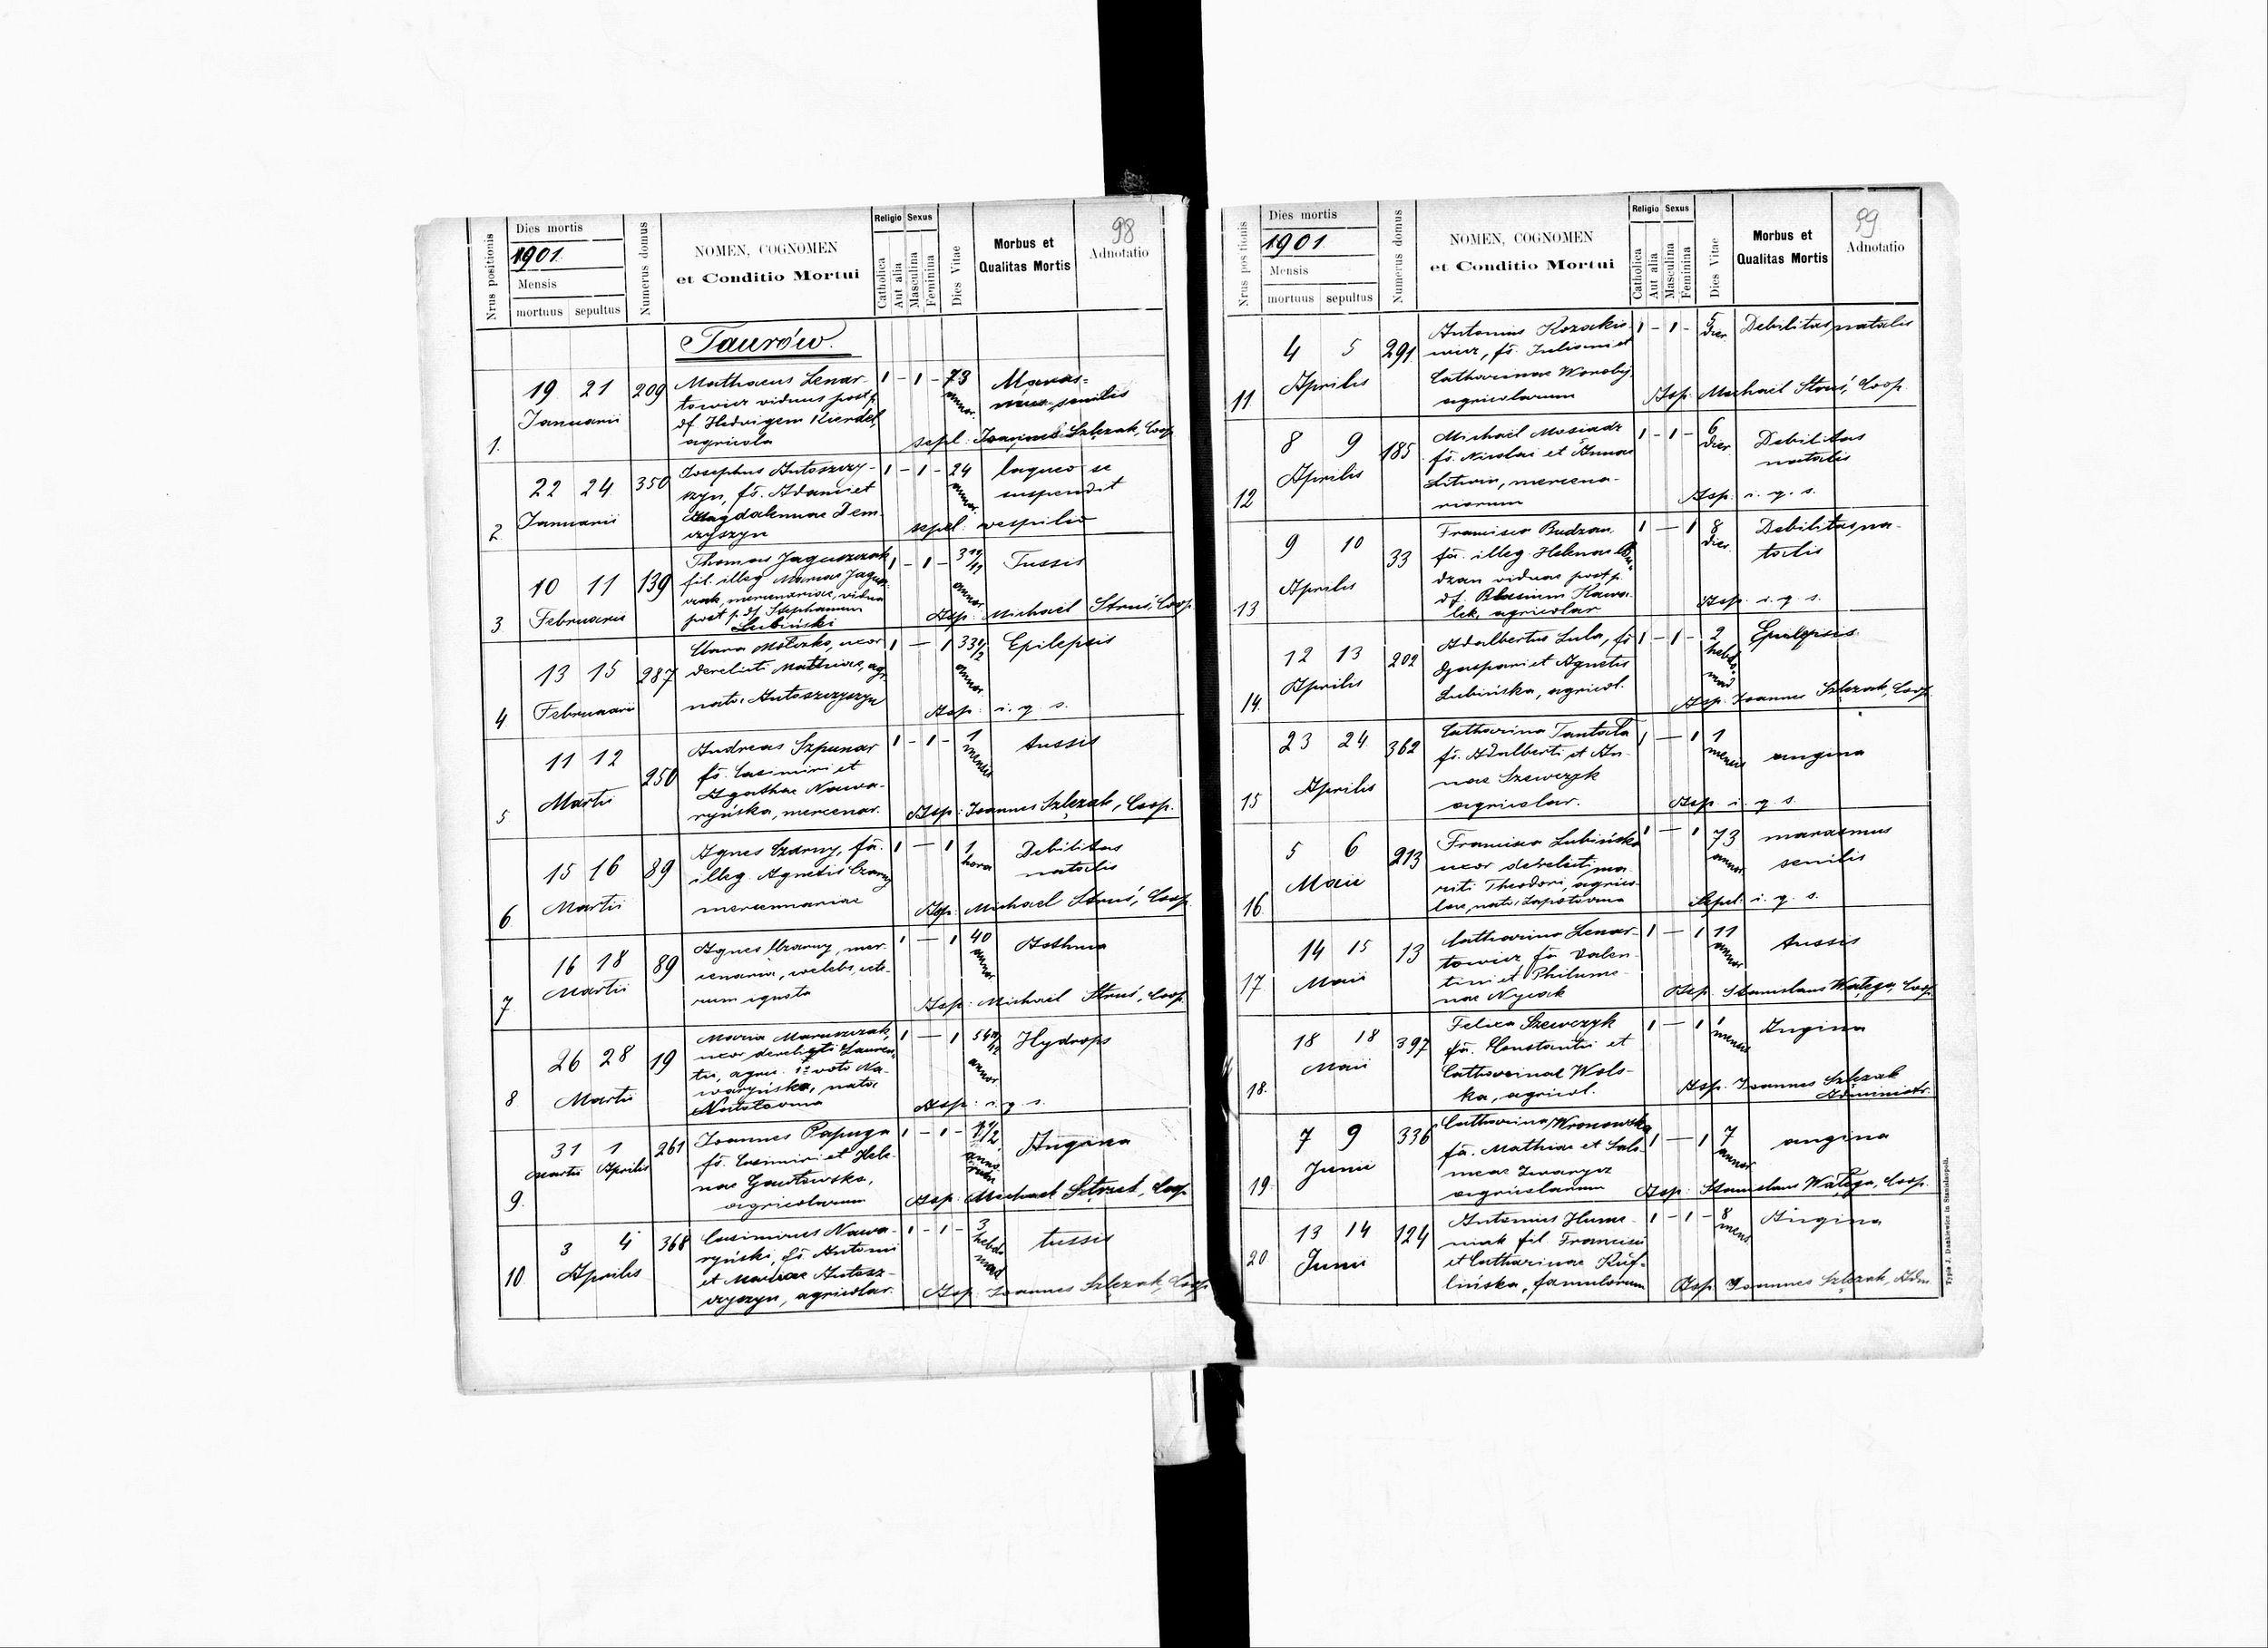 98
Nrus positionis
Dies mortis
1901
Mensis
mortuus sepultus
Numerus domus
NOMEN, COGNOMEN
et Conditio Mortui
Religio Sexus
Catholica
Aut alia
Masculina
Feminina
Dies Vitae
Morbus et
Qualitas Mortis
Adnotatio
Taurów.
1. 19 21 Januarii 209
Mathaeus Lenar-
towicz viduus post p.
df Hedvigem Kierdel,
agricola
1 - 1 - 73 annor.
senilis
sepel: Joannes Szlęzak, Coop
2 22 24 Januarii 350
Josephus Antoszczy-
szyn, fs. Adami et
Magdalenae Dem-
czyszyn
1 - 1 - 24 annor.
laqueo se
suspendit
sepel: vespilio
3 10 11 Februarii 139
Thomas Jaguszczak
fil. illeg. Mariae Jagusz-
czak, mercenariae, vidua
post p. df Stephanum
Lubiński
1 - 1 - 3 11/12 annor.
Tussis
Asp: Michaël Struś, Coop
4 13 15 Februarii 287
uxor
derelicti Mathiae, ag.
nata Antoszczyszyn
1 — 1 33 1/2 annor.
Epilepsis
Asp: i. q. s.
5 11 12 Martii 250
Andreas Szpunar
fs. Casimiri et
Agathae Nawa-
ryńska, mercenar.
1 - 1 - 1 mensis
tussis
Asp: Joannes Szlęzak, Coop.
6 15 16 Martii 89
Agnes Czarny, fa.
illeg. Agnetis Czarny
mercennariae
1 — 1 1 hora
Debilitas
natalis
Asp: Michael Struś, Coop.
7 16 18 Martii 89
Agnes Czarny, mer-
cenaria, coelebs, cete-
rum ignota
1 — 1 40 annor
Asthma
Asp: Michaël Struś, Coop
8 26 28 Martii 19
Maria Maruszczak,
uxor derelicti Lauren-
tii, agric. 1º voto Na-
waryńska, nata
1 — 1 annor
Hydrops
Asp: i. q. s.
9. 31 Martii 1 Aprilis 261
Joannes Papuga
fs. Casimiri et Hele-
nae
agricolarum
1 - 1 -
Angina
Asp: Michael Coop
10 3 4 Aprilis 368
Casimirus Nawa-
ryński, fs. Antonii
et Mariae Antosz-
czyszyn, agricolar.
1 - 1 - 3 hebdomad
tussis
Asp: Joannes Szlęzak, Coop
99
Nrus positionis
Dies mortis
1901
Mensis
mortuus sepultus
Numerus domus
NOMEN, COGNOMEN
et Conditio Mortui
Religio Sexus
Catholica
Aut alia
Masculina
Feminina
Dies Vitae
Morbus et
Qualitas Mortis
Adnotatio
11. 4 5 Aprilis 291
Antonius Kozakie-
wicz, fs. Juliani et
Catharinae Worobij,
agricolarum
1 - 1 - 5 dier.
Debilitas natalis
Asp: Michaël Struś, Coop.
12 8 9 Aprilis 185
Michaël Mosiadz
fs. Nicolai et Annae
Litwin, mercena-
riorum
1 - 1 - 6 dier
Debilitas
natalis
Asp: i. q. s.
13 9 10 Aprilis 33
Francisca Budzan,
fa. illeg. Helenae Bu-
dzan viduae post p.
df. Blasium Kawa-
lek, agricolar
1 — 1 8 dier.
Debilitas na-
talis
Asp. i. q. s.
14. 12 13 Aprilis 202
Adalbertus Lula, fs
Gaspari et Agnetis
Lubińska, agricol.
1 - 1 - 2 hebdo-
mad
Epilepsis
Asp. Joannes Szlęzak, Coop
15 23 24 Aprilis 362
Catharina Tantala
fa. Adalberti et An-
nae Szewczyk
agricolar.
1 — 1 1 mensis
angina
Asp i. q. s.
16. 5 6 Maii 213
Francisca Lubińska
uxor derelicti ma-
riti Theodori, agrico-
lae, nata
1 — 1 73 annor
marasmus
senilis
Sepel: i. q. s.
17. 14 15 Maii 13
Catharina Lenar-
towicz fa Valen-
tini et Philume-
nae Nycak
1 — 1 11 annor
tussis
Asp. Stanislaus Wałęga, Coop.
18. 18 18 Maii 397
Felixa Szewczyk
fa. Constantii et
Catharinae Wols-
ka, agricol.
1 — 1 1 mensis
Angina
Asp. Joannes Szlęzak
Administr.
19. 7 9 Junii 336
Catharina Wronowska
fa. Mathiae et Salo-
meae Iwanycz
agricolarum
1 — 1 7 annor
angina
Asp: Stanislaus Wałęga, Coop.
20 13 14 Junii 124
Antonius Hume-
niak fil Francisci
et Catharinae Kuf-
lińska, famulorum
1 - 1 - 8 mens.
Angina
Asp Joannes Szlęzak, Adm
Typis J. Dankiewicz in Stanislaopoli.